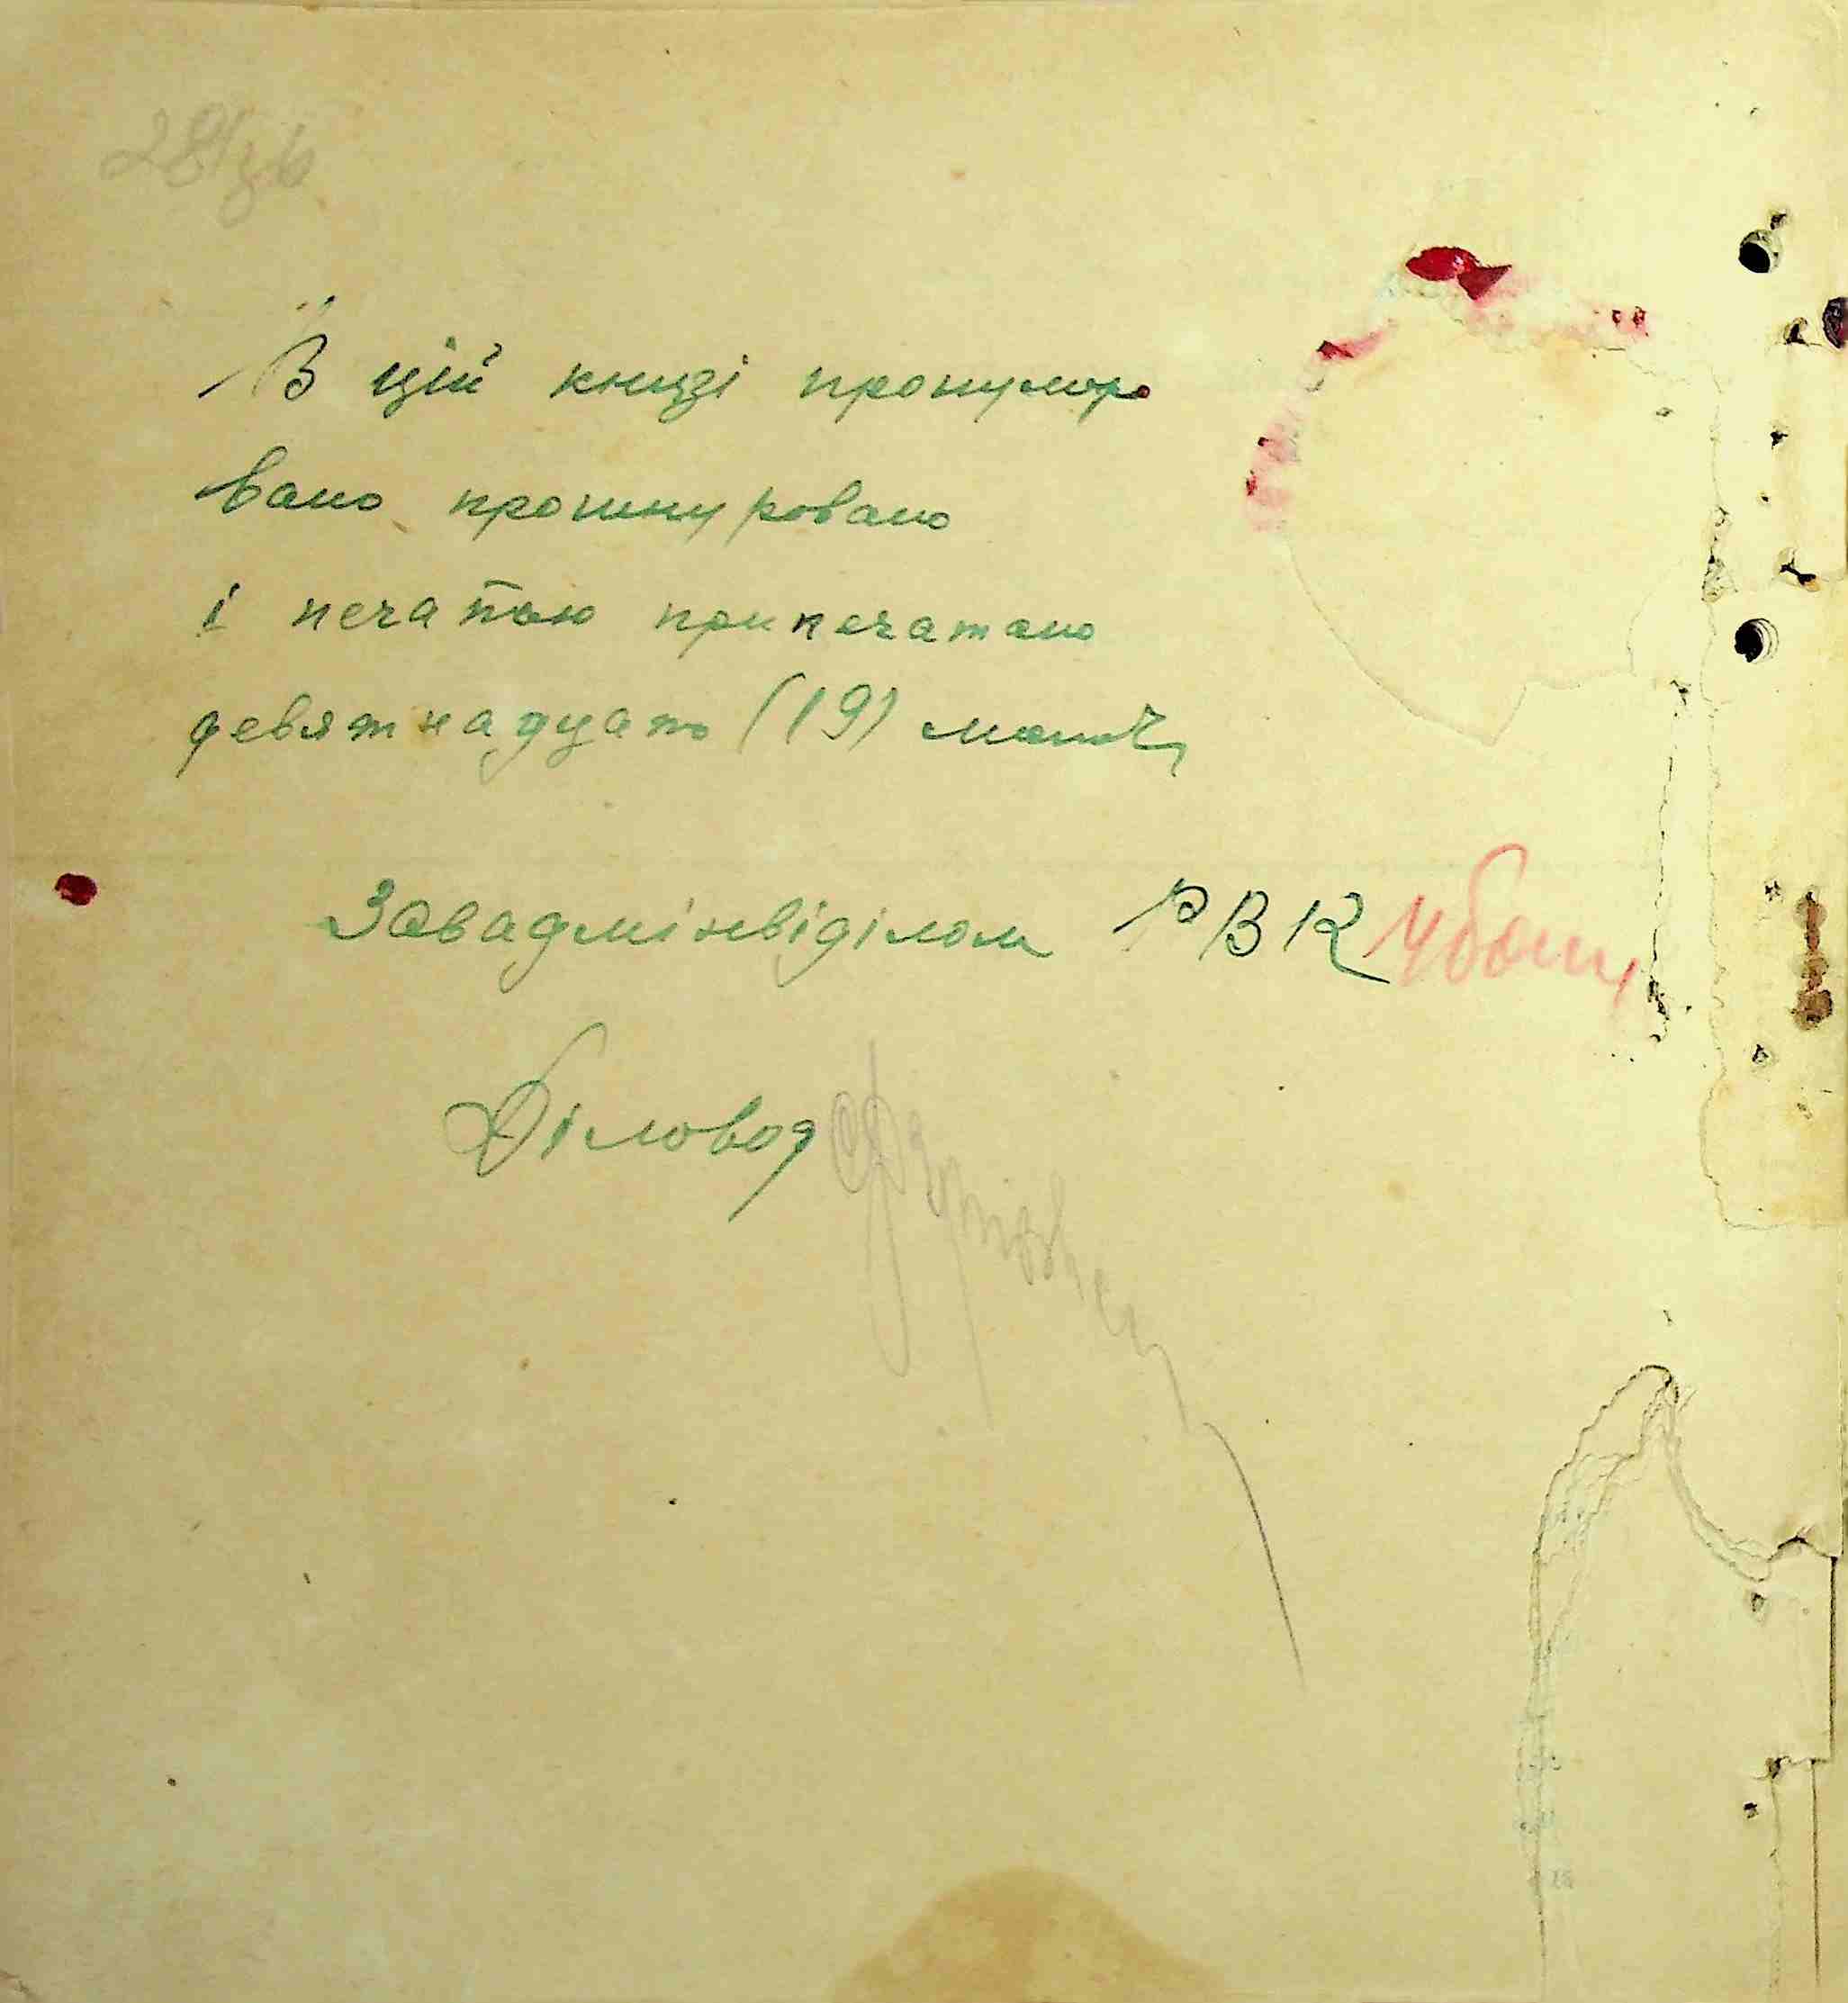 В цій книзі пронумеро
вано прошнуровано
і печатью припечатано
девятнадцать (19)
Завадмінвіділом РВК
Діловод